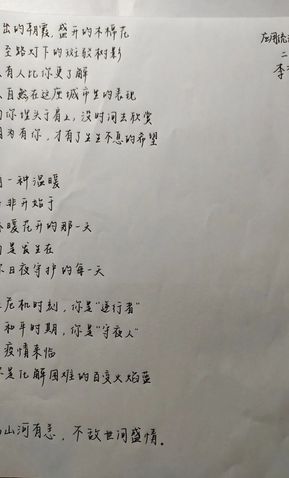 出的朝霞，盛开的木棉花
至路灯下的斑驳树影
有人比你更了解
自然在这座城市里的表现
你埋头于肩上，没时间去欣赏
因为有你，才有了生生不息的希望
一种温暖
非开始于
暖花开的那一天
是发生在
日夜守护的每一天
危机时刻，你是“逆行者”
和平时期，你是“守夜人”
疫情来临
是化解困难的百变火焰蓝
山河有恙，不敌世间盛情。
应用
二
李